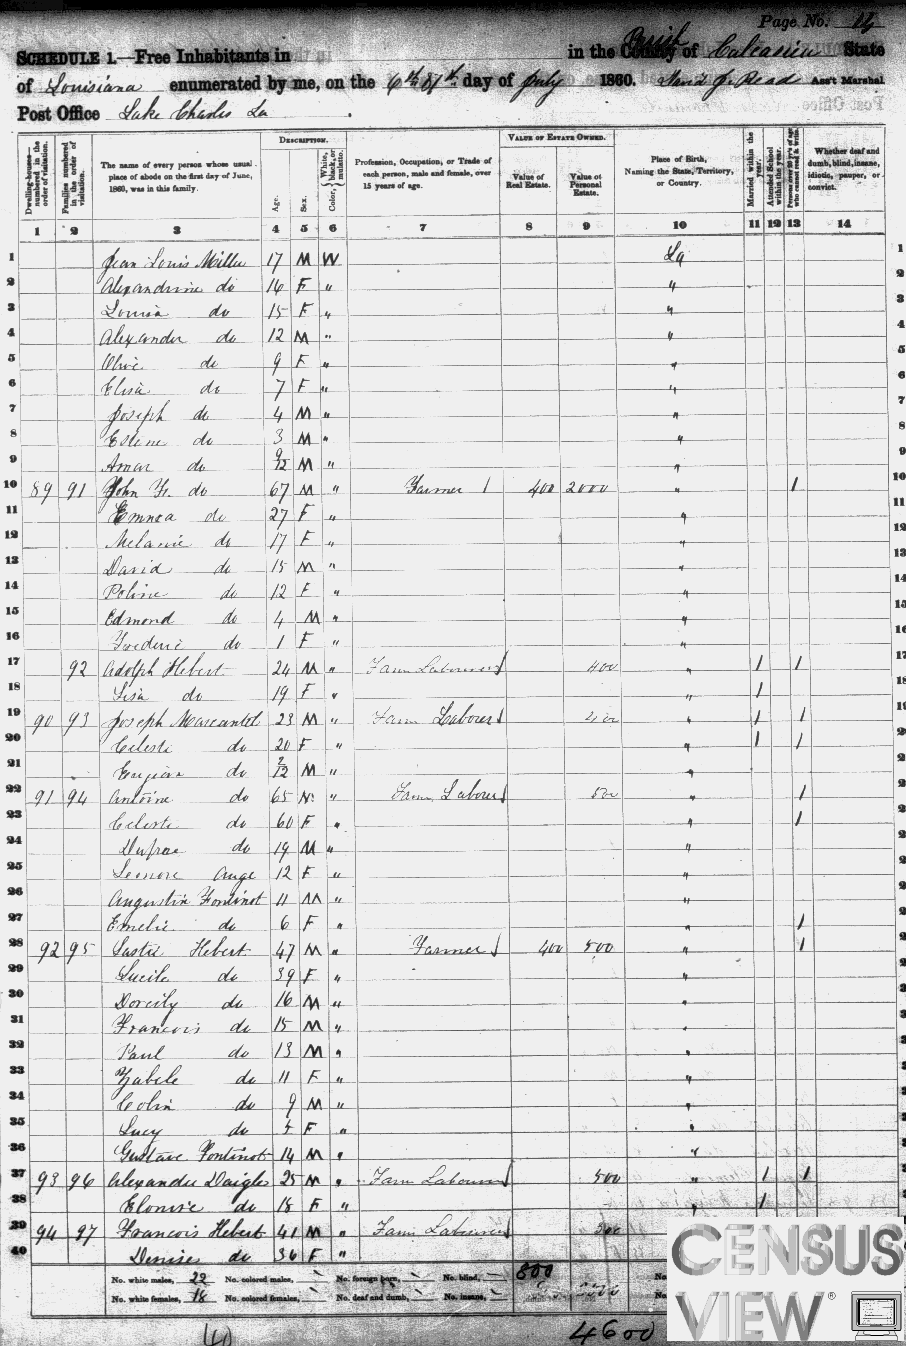 Page No. 14
SCHEDULE 1.—Free Inhabitants in in the County Parish of Calcasieu State
of Louisiana enumerated by me, on the 6th & 7th day of July 1860. David J. Read Ass't Marshal
Post Office Lake Charles La.
Dwelling-houses—numbered in the order of visitation.
Families numbered in the order of visitation.
The name of every person whose usual place of abode on the first day of June, 1860, was in this family.
DESCRIPTION.
Age.
Sex.
Color, White, black, or mulatto.
Profession, Occupation, or Trade of each person, male and female, over 15 years of age.
VALUE OF ESTATE OWNED.
Value of Real Estate.
Value of Personal Estate.
Place of Birth, Naming the State, Territory, or Country.
Married within the year.
Attended School within the year.
Persons over 20 y'rs of age who cannot read & write.
Whether deaf and dumb, blind, insane, idiotic, pauper, or convict.
1 2 3 4 5 6 7 8 9 10 11 12 13 14
1 Jean Louis Miller 17 M W La 1
2 Alexandrine do 16 F " " 2
3 Louisa do 15 F " " 3
4 Alexander do 12 M " " 4
5 Olive do 9 F " " 5
6 Elisa do 7 F " " 6
7 Joseph do 4 M " " 7
8 do 3 M " " 8
9 do 9/12 M " " 9
10 89 91 John do 67 M " Farmer 1 400 2000 " 1 10
11 do 27 F " " 11
12 Melanie do 17 F " " 12
13 David do 15 M " " 13
14 Poline do 12 F " " 14
15 Edmond do 4 M " " 15
16 Frederic do 1 F " " 16
17 92 Adolph Hebert 24 M " Farm Labourer 400 " 1 1
18 Lisa do 19 F " " 1
19 90 93 Joseph Marcantel 23 M " Farm Laborer " 1 1
20 Celeste do 20 F " " 1 1
21 do 2/12 M " "
22 91 94 Antoine do 65 M " Farm Laborer 500 " 1
23 Celeste do 60 F " " 1
24 do 19 M " "
25 Leonore Auge 12 F " "
26 Augustin Fontinot 11 M " "
27 Emelie do 6 F " " 1
28 92 95 Lastie Hebert 47 M " Farmer 400 500 " 1
29 Lucile do 39 F " "
30 Dorcily do 16 M " "
31 Francois do 15 M " "
32 Paul do 13 M " "
33 Zabele do 11 F " "
34 Colin do 9 M " "
35 Lucy do F " "
36 Gustave Fontinot 14 M " "
37 93 96 Alexandre Daigle 25 M " Farm Labourer 500 " 1 1
38 Elonise do 18 F " " 1
39 94 97 Francois Hebert 41 M " Farm Labourer
40 Denise do 36 F "
No. white males, 22 No. colored males, No. foreign born, No. blind, 800 No.
No. white females, 18 No. colored females, No. deaf and dumb, No. insane, No.
4600
CENSUS
VIEW®